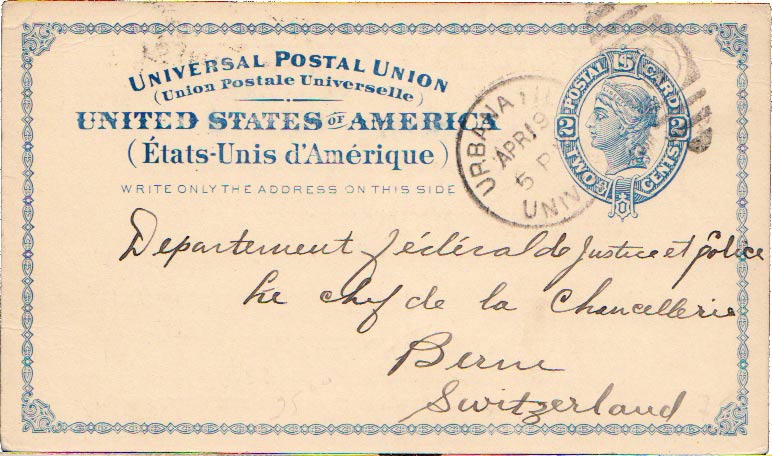 UNIVERSAL POSTAL UNION
(Union Postale Universelle)
UNITED STATES OF AMERICA
(États-Unis d'Amérique)
WRITE ONLY THE ADDRESS ON THIS SIDE
U.S. POSTAL CARD
2 2
TWO CENTS
URBANA
APR 19
5 P
UNIV
Departement fédéral de Justice et police
Le chef de la Chancellerie
Berne
Switzerland